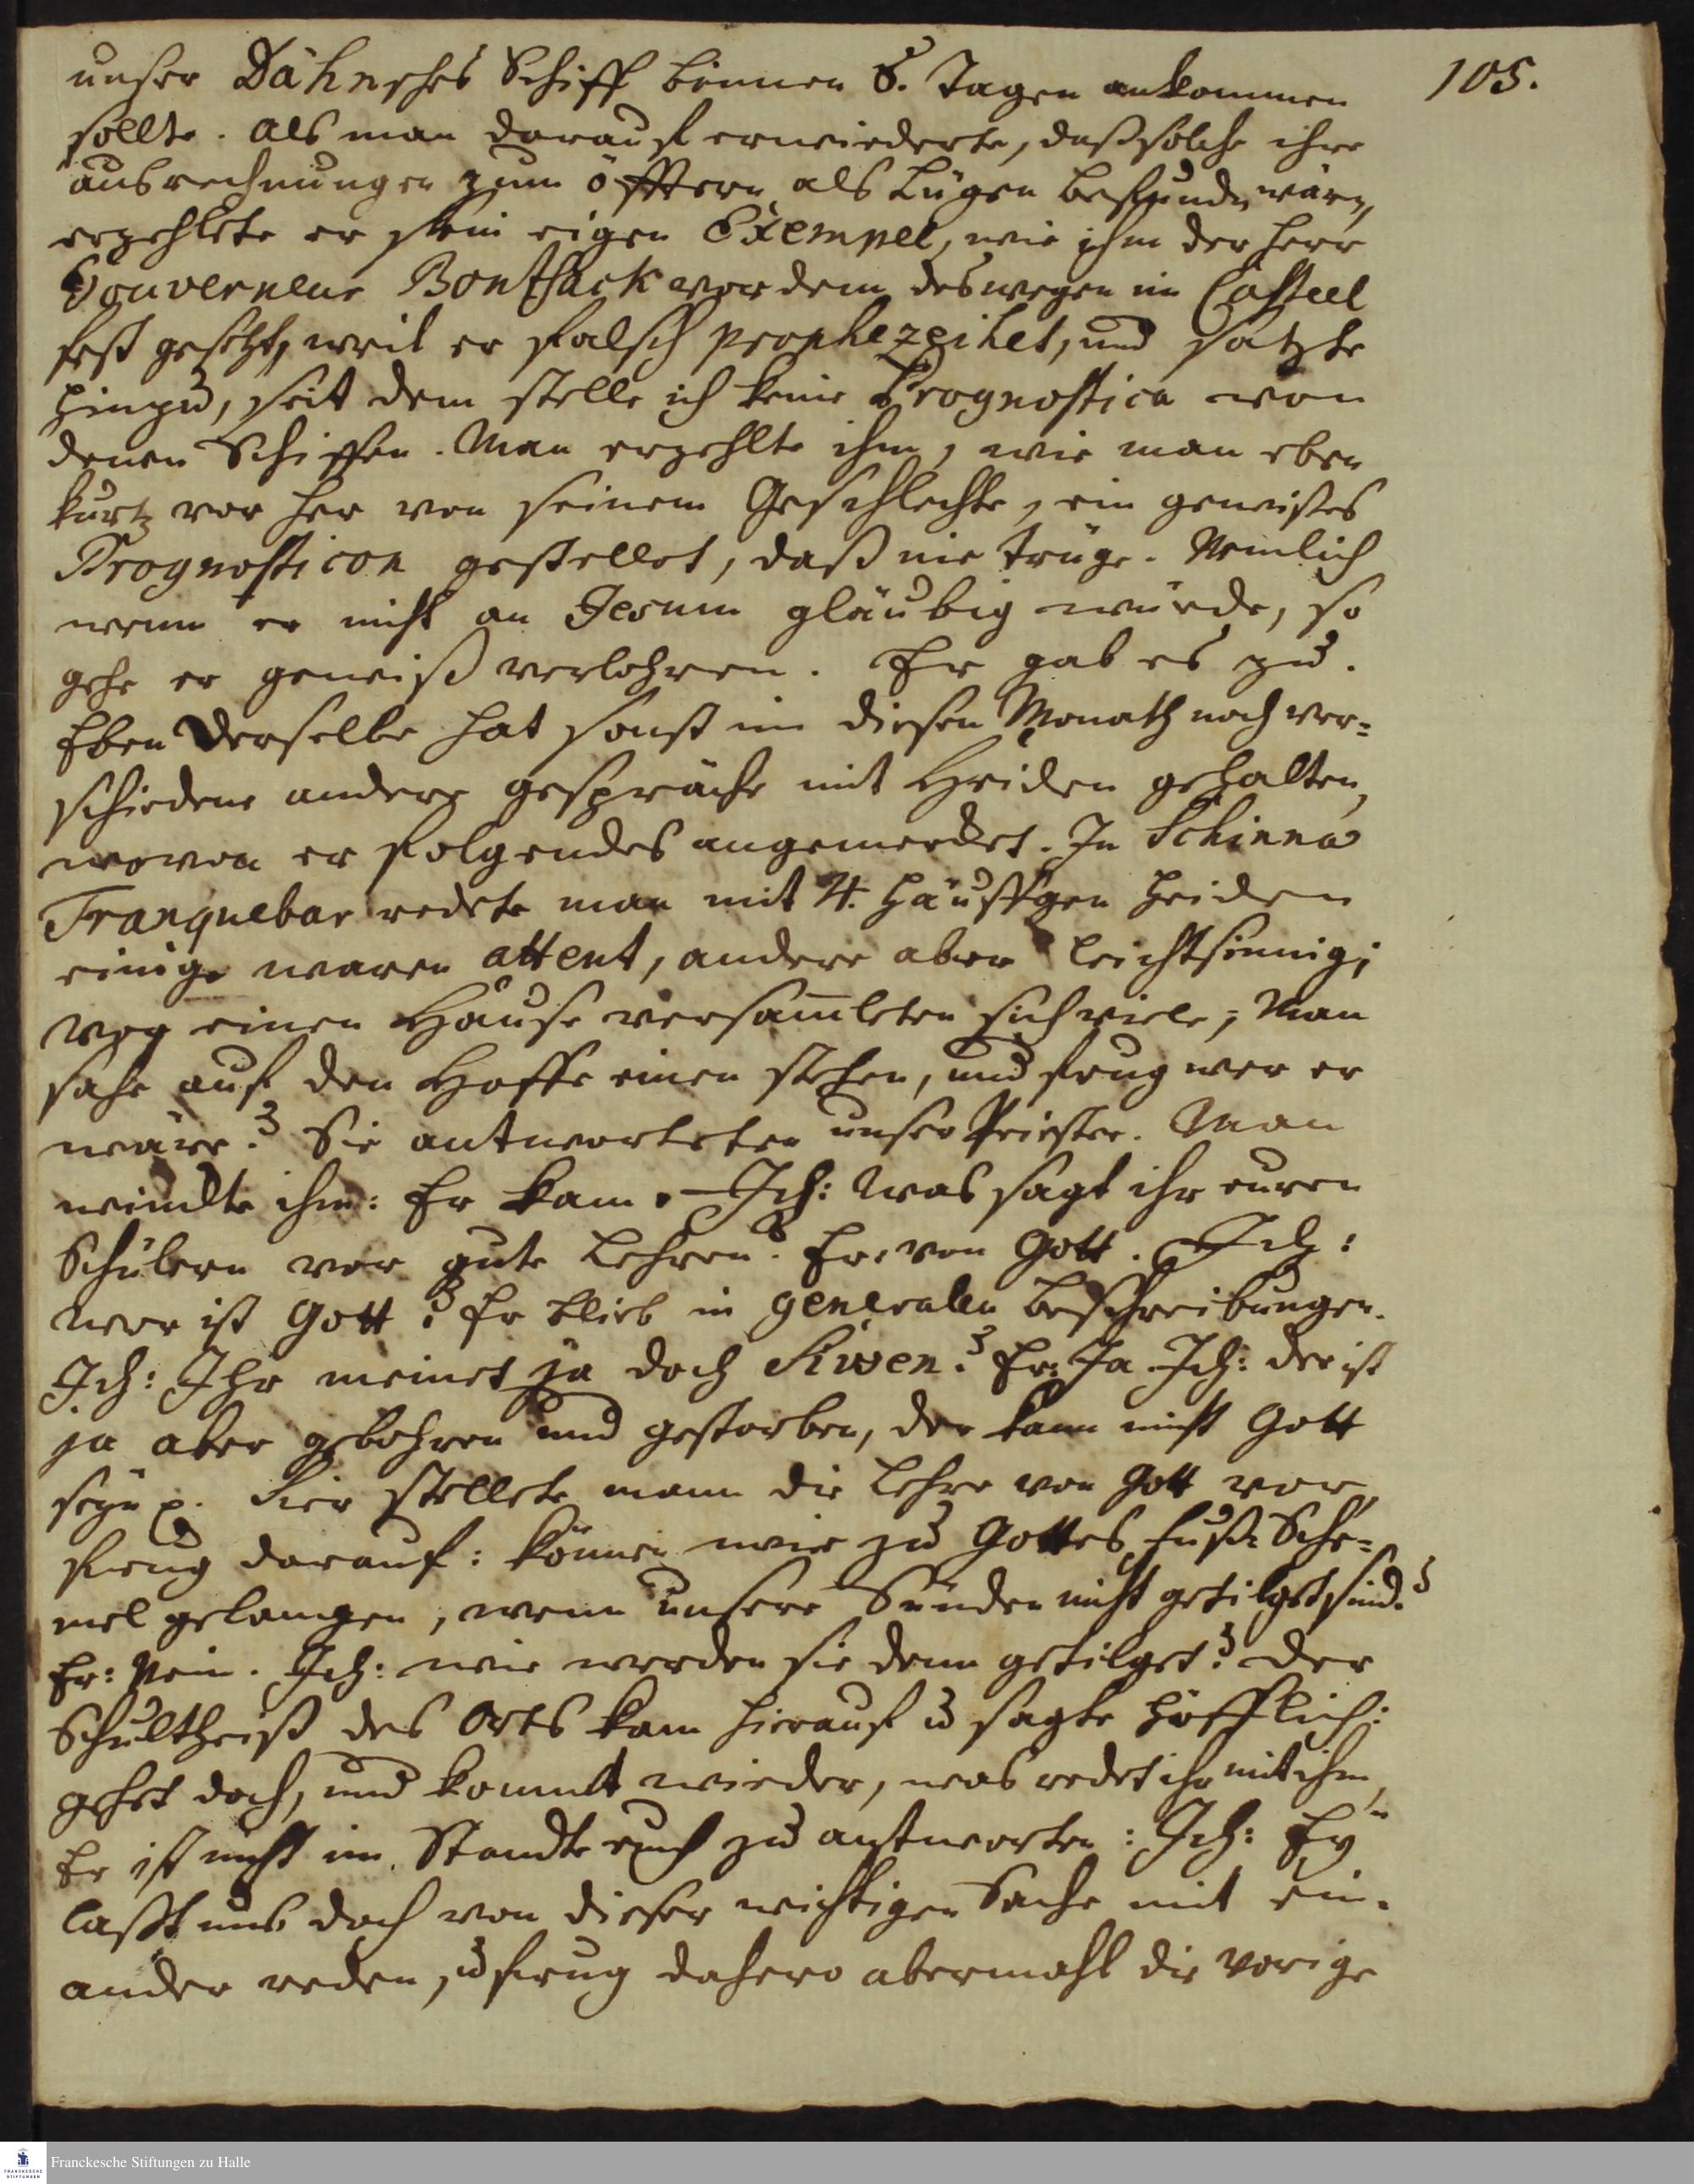 105.
unser Dähnsches Schiff binnen 8. Tagen ankommen
sollte. Als man darauf erwiederte, daß solche ihre
ausrechnungen zum öfftern als Lügen befunden wären,
erzehlete er sein eigen Exempel, wie ihm der Herr
Gouverneur Bonsack vor dem deswegen im Casteel
fest gesetzt, weil er falsch prophezeihet, und satzte
hinzu, seit dem stelle ich keine Prognostica von
denen Schiffen. Man erzehlte ihm, wie man eben
kurtz vor her von seinem Geschlechte, ein gewißes
Prognosticon gestellet, daß nie trüge. Nemlich
wenn er nicht an Jesum gläubig würde, so
gehe er gewiß verlohren. Er gab es zu.
Eben derselbe hat sonst in diesen Monath noch ver=
schiedene andere gespräche mit Heiden gehalten,
wovon er folgendes angemercket. In Schinna
Tranquebar redete man mit 4. häuffgen Heiden
einige waren attent, andere aber leichtsinnig;
Vor einen Hause versam̅leten sich viele; Man
sahe auf den Hoffe einen stehen, und frug wer er
wäre? Sie antworteten unser Priester. Man
winckte ihm: Er kam. Ich: Was sagt ihr euren
Schülern vor gute Lehren? Er: von Gott. Ich:
Wer ist Gott? Er blieb in generalen beschreibungen.
Ich: Ihr meinet ja doch Siwen? Er: Ja. Ich: der ist
ja aber gebohren und gestorben, der kann nicht Gott
seyn p. Hier stellete mann die Lehre von Gott vor,
frug darauf: können wir zu Gottes Fuß=Sche=
mel gelangen, wenn unsere Sünden nicht getilget sind?
Er: Nein. Ich: wie werden sie denn getilget? Der
Schultheiß des Orts kam hierauf u sagte höfflich:
gehet doch, und kommt wieder, was redet ihr mit ihm,
Er ist nicht im Stande euch zu antworten: Ich: Ey
laßt uns doch von dieser wichtigen Sache mit ein=
ander reden, u frug dahero abermahl die vorige
Franckesche Stiftungen zu Halle
FRANCKESCHE
STIFTUNGEN